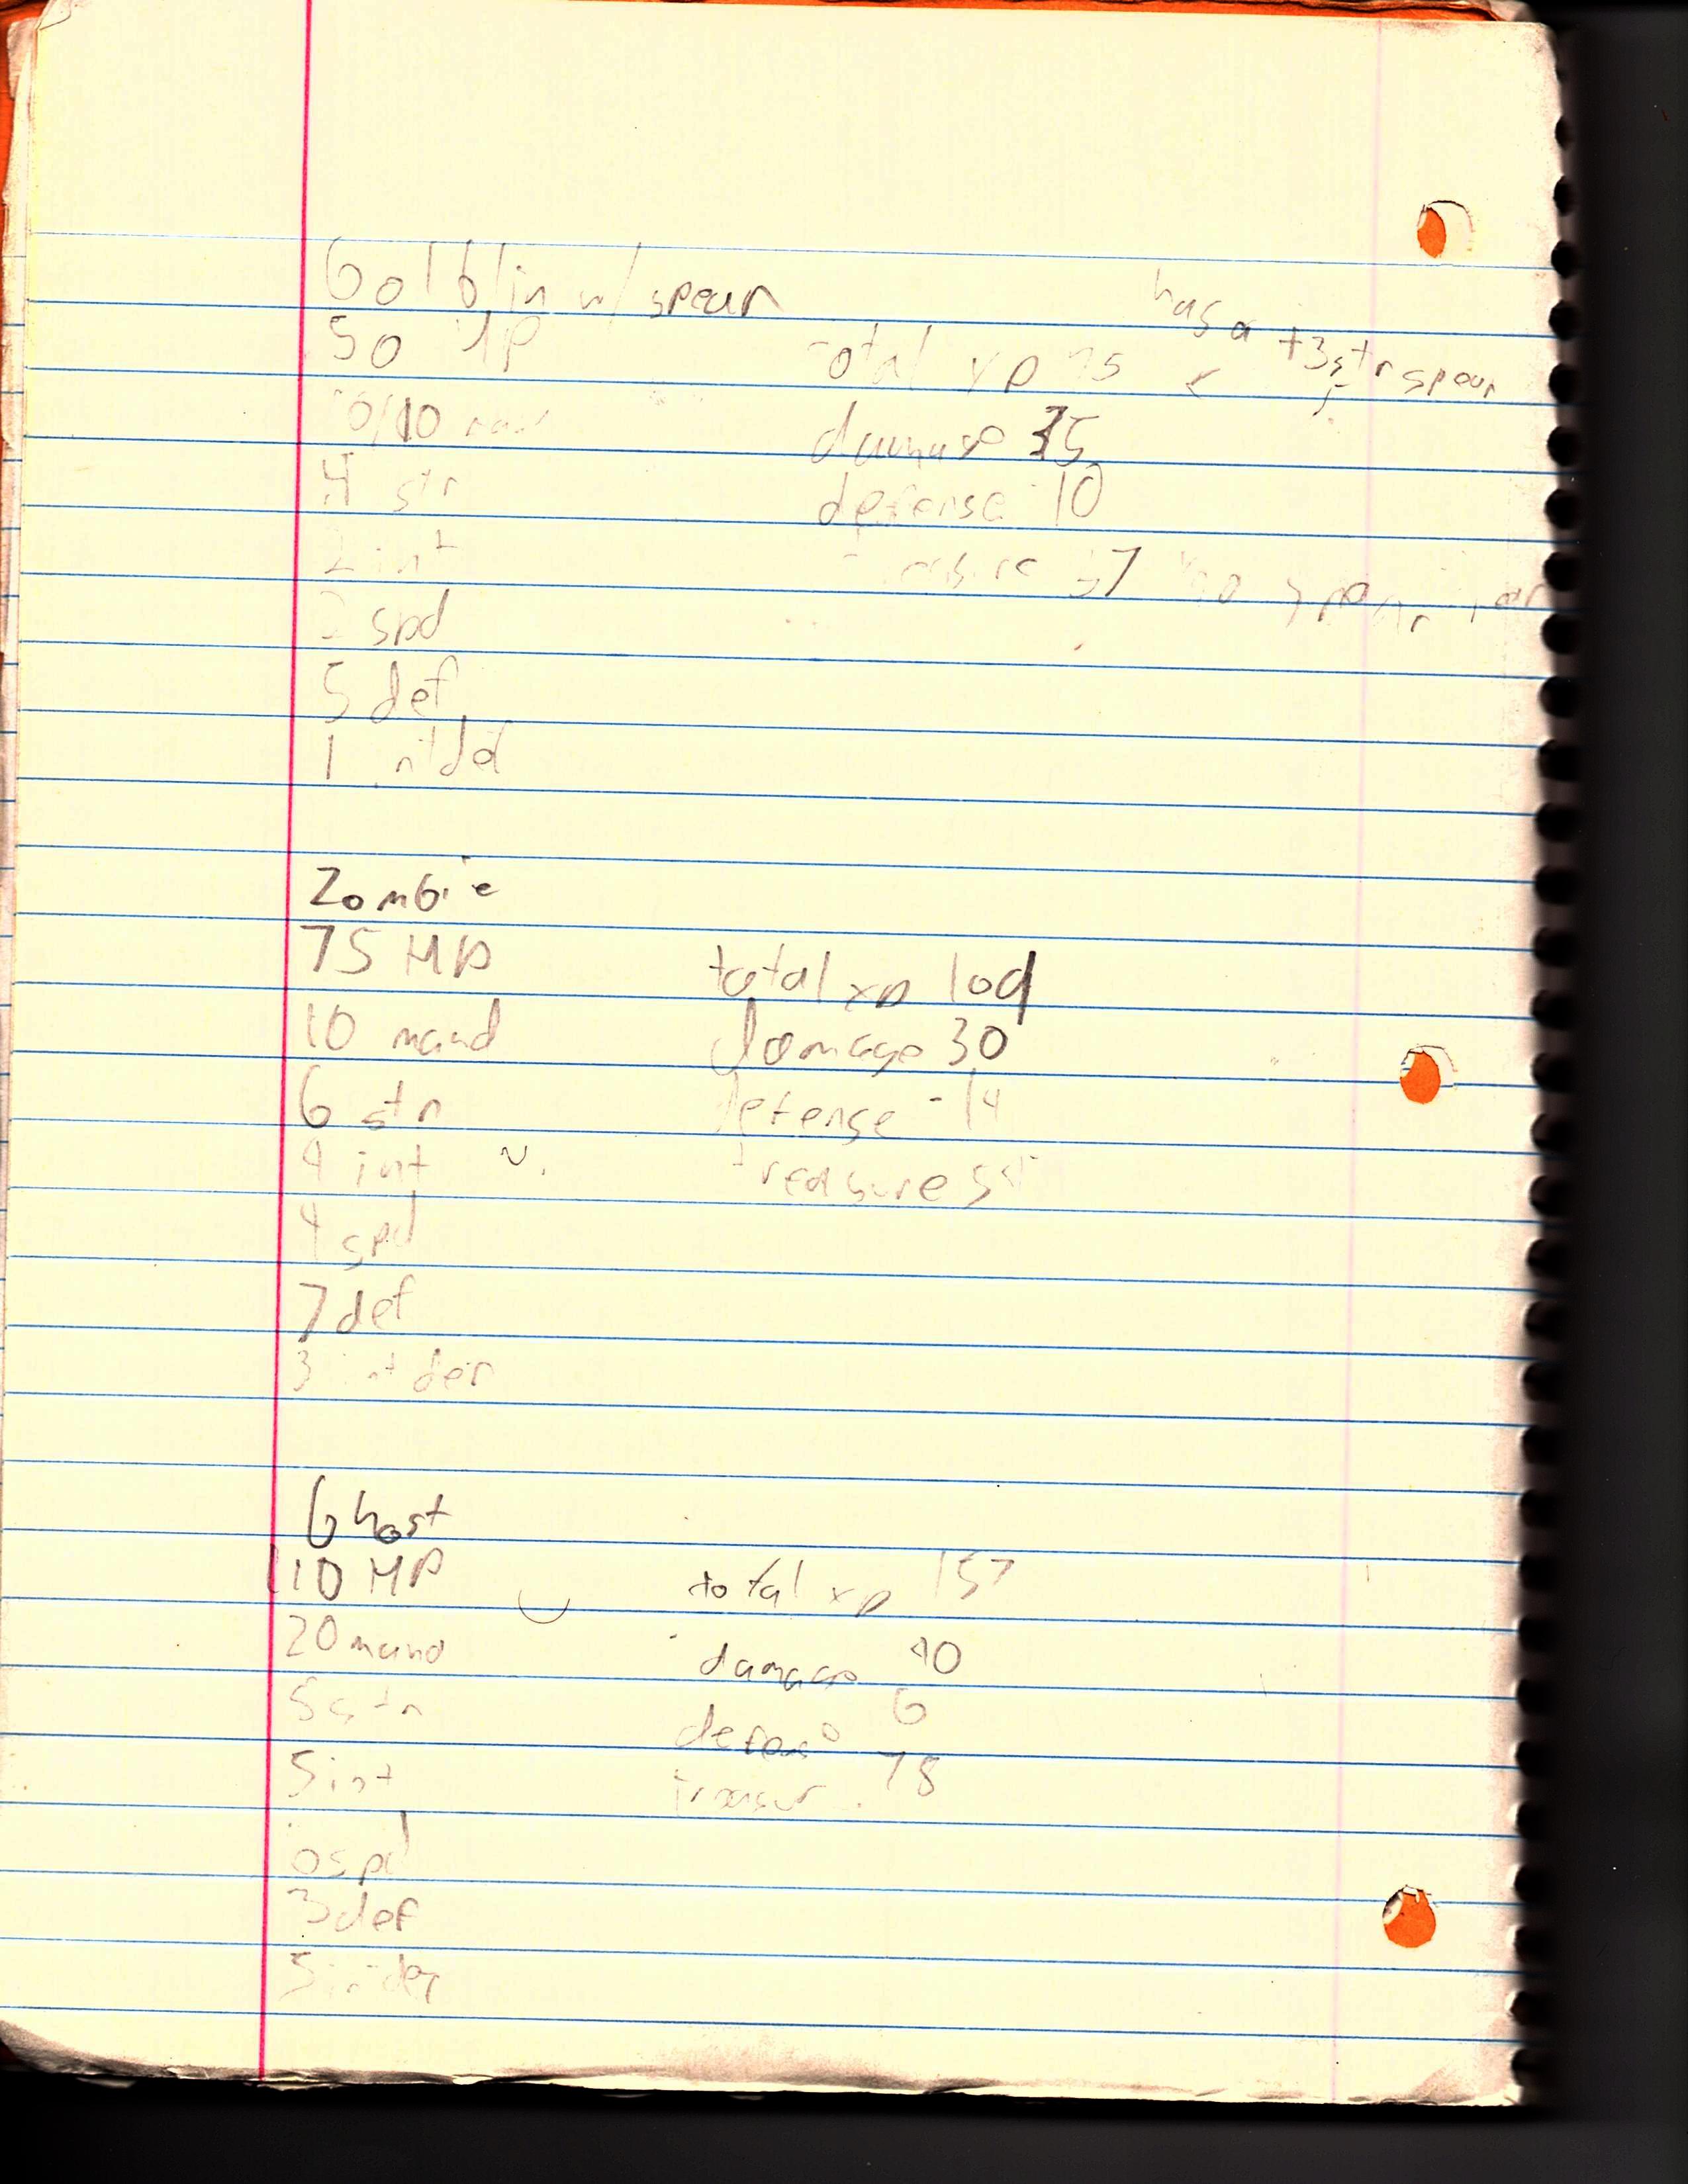 Golblin w/ spear
has a +3 str spear
50 HP
total xp 75
0/10
damage 35
4 str
defense 10
2 int
37
spd
5 def
1
Zombie
75 HP
total xp 109
10 mand
damage 30
6 str
defense - 14
4 int
treasure
4 spd
7 def
3 int def
Ghost
110 HP
total xp 157
20 mand
damage 40
5 str
6
defense
5 int
78
spd
3 def
5